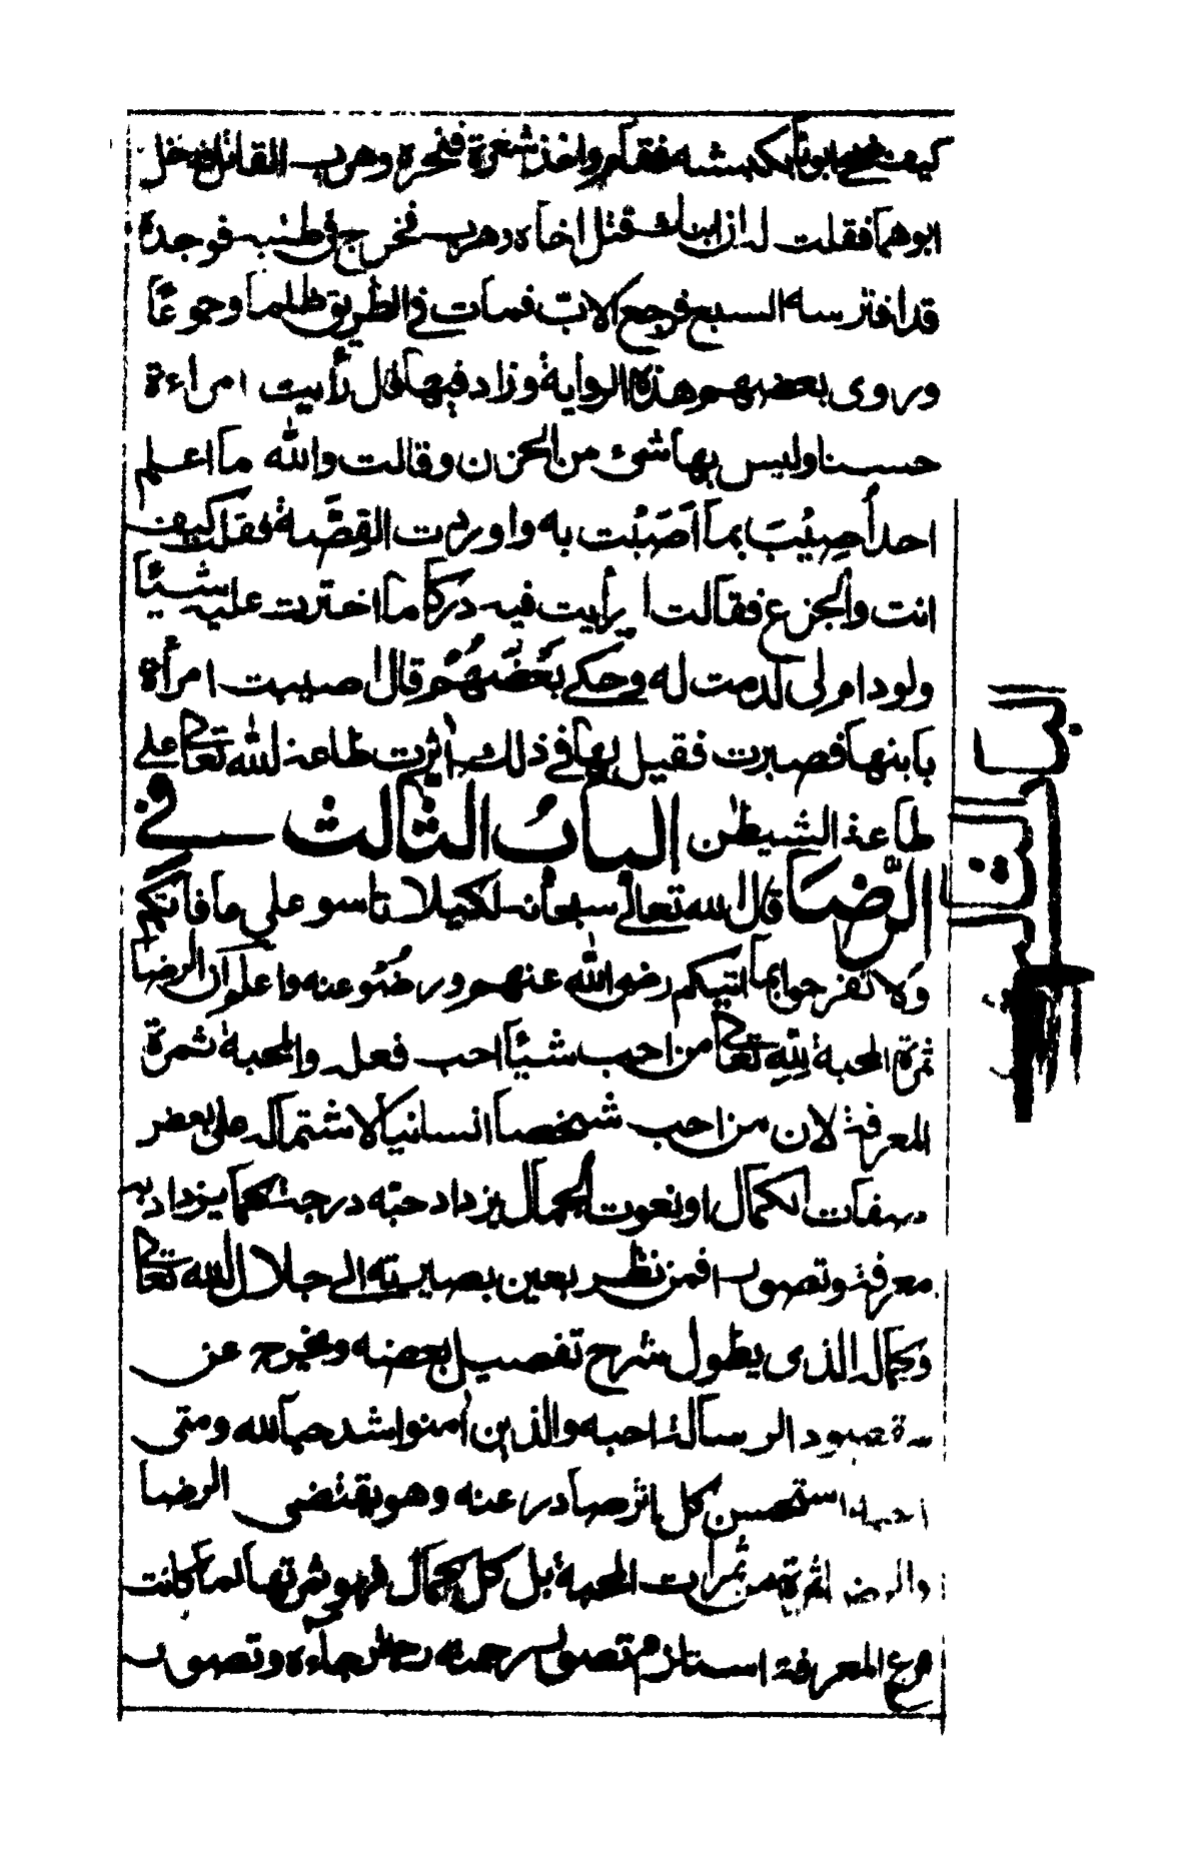 كيف ضحى ابونا بكبشه فقام واخذ شفرة فنحره وهرب القاتل فدخل
ابوهما فقلت له ان ابنك قتل اخاه وهرب فخرج في طلبه فوجده
قد افترسه السبع فرجع الاب فمات في الطريق ظلما وجوعًا
وروى بعضهم هذه الرواية وزاد فيها قال رأيت امراءة
حسنا وليس بها شئ من الحزن وقالت والله ما اعلم
احدا أصِيْبَ بما اَصَبْت به واوردت القِصَّة فقلت كيف
انت والجزع فقالت ا رأيت فيه دركا ما اخترت عليه شيئًا
ولو دام لى لدمت له وحكى بَعْضُهُم قال اصيبت امرأة
بابنها فصبرت فقيل لها في ذلك أثرت طاعة لله تعالى على
طاعة الشيطن الباب الثالث في
الرّضا قال الله تعالى سبحانه لكيلا تاسو على ما فاتكم
وَلا تفرحوا بما اتيكم رضى الله عنهم ورضُوْ عنه واعلم ان الرضا
ثمرة المحبة لِلّهِ تعالى من احب شيئًا احب فعله والمحبة ثمرة
المعرفة لان من احب شخصا انسانيا لاشتماله على بعض
صفات الكمال او نعوت الجمال يزداد حبّه درجة كما يزداد به
معرفة وتصورا فمن نظر بعين بصيرته الى جلال الله تعالى
وكماله الذى يطول شرح تفصيل بعضه ويخرج عن
مقصود الرسالة احبه والذين أمنوا اشد حبا لله ومتى
احبه استحسن كل اثر صادر عنه وهو يقتضى الرضا
والرضا ثمرة من ثمرات المحبة بل كل كمال فهو ثمرتها لما كانت
فرع المعرفة استلزم تصور رحمته رجاءه وتصور
باب
ثالث